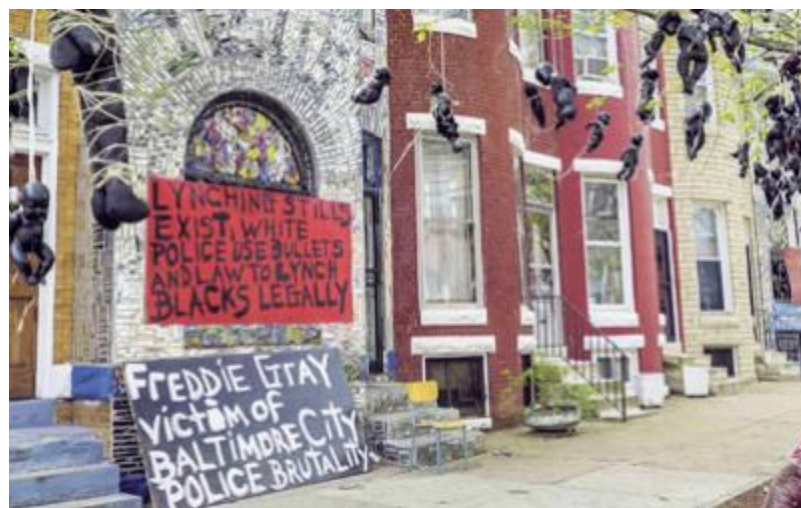 LYNCHING STILLS
EXIST, WHITE
POLICE USE BULLETS
AND LAW TO LYNCH
BLACKS LEGALLY
FREDDIE GRAY
VICTiM OF
BALTIMORE CiTY
POLICE BRUTALITY.